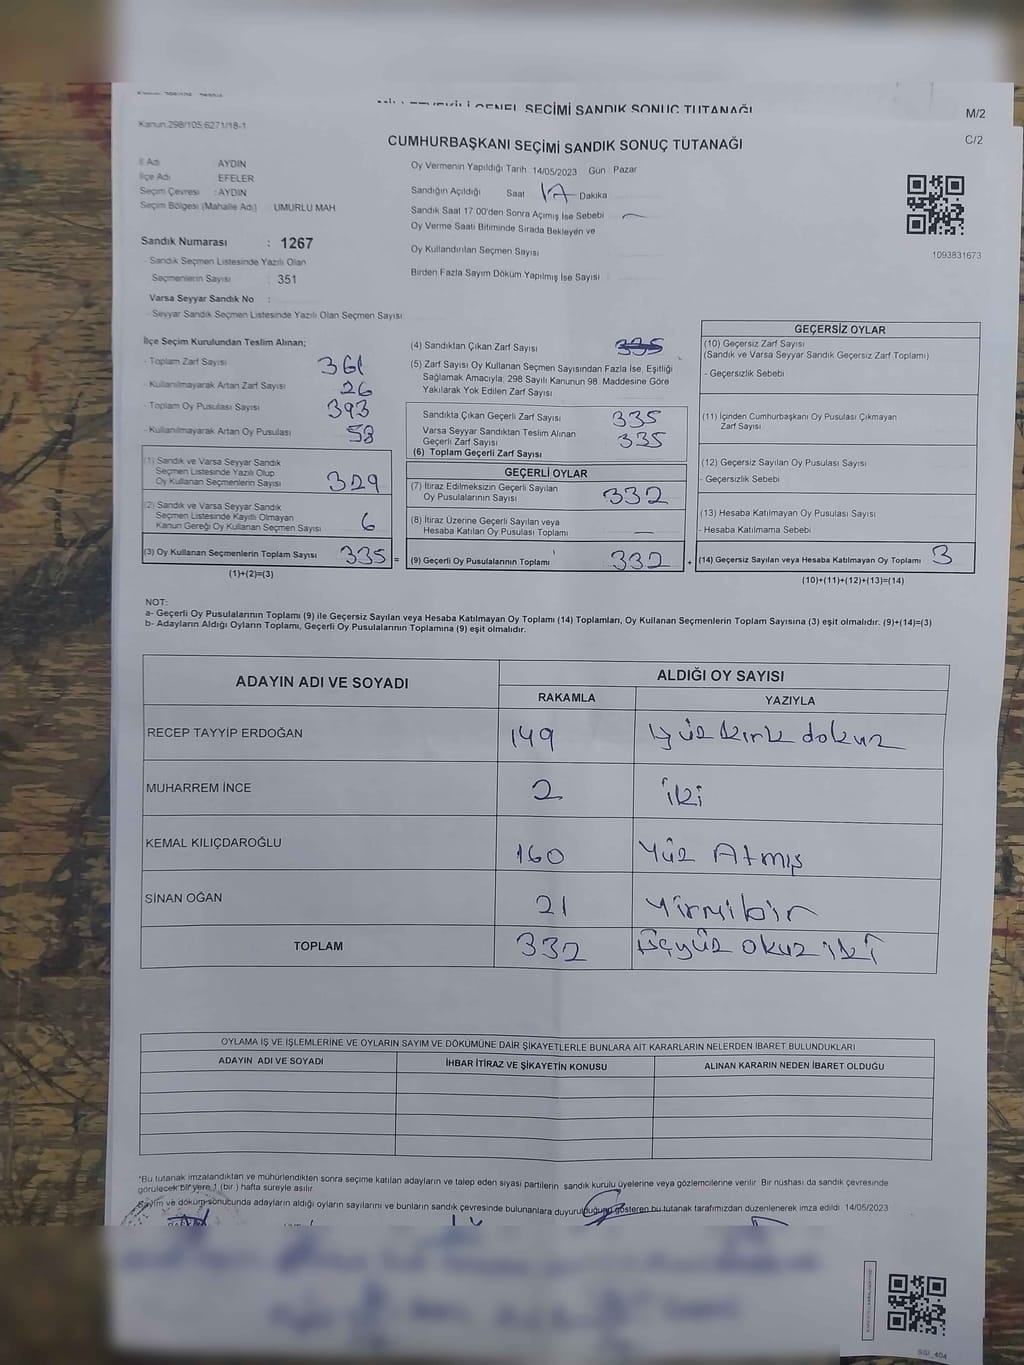 GENEL SEÇİMİ SANDIK SONUÇ TUTANAĞI
M/2
Kanun 298/105,6271/18-1
CUMHURBAŞKANI SEÇİMİ SANDIK SONUÇ TUTANAĞI
C/2
İl Adı AYDIN
İlçe Adı EFELER
Seçim Çevresi : AYDIN
Seçim Bölgesi (Mahalle Adı) UMURLU MAH
Sandık Numarası : 1267
- Sandık Seçmen Listesinde Yazılı Olan
Seçmenlerin Sayısı : 351
Varsa Seyyar Sandık No :
- Seyyar Sandık Seçmen Listesinde Yazılı Olan Seçmen Sayısı
Oy Vermenin Yapıldığı Tarih 14/05/2023 Gün Pazar
Sandığın Açıldığı Saat Dakika
Sandık Saat 17:00'den Sonra Açımış İse Sebebi
Oy Verme Saati Bitiminde Sırada Bekleyen ve
Oy Kullandırılan Seçmen Sayısı
Birden Fazla Sayım Döküm Yapılmış İse Sayısı
1093831673
İlçe Seçim Kurulundan Teslim Alınan;
- Toplam Zarf Sayısı 361
- Kullanılmayarak Artan Zarf Sayısı 26
- Toplam Oy Pusulası Sayısı 393
- Kullanılmayarak Artan Oy Pusulası 58
(1) Sandık ve Varsa Seyyar Sandık
Seçmen Listesinde Yazılı Olup
Oy Kullanan Seçmenlerin Sayısı 329
(2) Sandık ve Varsa Seyyar Sandık
Seçmen Listesinde Kayıtlı Olmayan
Kanun Gereği Oy Kullanan Seçmen Sayısı 6
(3) Oy Kullanan Seçmenlerin Toplam Sayısı 335 =
(1)+(2)=(3)
(4) Sandıktan Çıkan Zarf Sayısı 335
(5) Zarf Sayısı Oy Kullanan Seçmen Sayısından Fazla İse, Eşitliği
Sağlamak Amacıyla, 298 Sayılı Kanunun 98. Maddesine Göre
Yakılarak Yok Edilen Zarf Sayısı
Sandıkta Çıkan Geçerli Zarf Sayısı 335
Varsa Seyyar Sandıktan Teslim Alınan
Geçerli Zarf Sayısı 335
(6) Toplam Geçerli Zarf Sayısı
GEÇERLİ OYLAR
(7) İtiraz Edilmeksizin Geçerli Sayılan
Oy Pusulalarının Sayısı 332
(8) İtiraz Üzerine Geçerli Sayılan veya
Hesaba Katılan Oy Pusulaları Toplamı —
(9) Geçerli Oy Pusulalarının Toplamı 332 +
GEÇERSİZ OYLAR
(10) Geçersiz Zarf Sayısı
(Sandık ve Varsa Seyyar Sandık Geçersiz Zarf Toplamı)
- Geçersizlik Sebebi
(11) İçinden Cumhurbaşkanı Oy Pusulası Çıkmayan
Zarf Sayısı
(12) Geçersiz Sayılan Oy Pusulası Sayısı
- Geçersizlik Sebebi
(13) Hesaba Katılmayan Oy Pusulası Sayısı
- Hesaba Katılmama Sebebi
(14) Geçersiz Sayılan veya Hesaba Katılmayan Oy Toplamı 3
(10)+(11)+(12)+(13)=(14)
NOT:
a- Geçerli Oy Pusulalarının Toplamı (9) ile Geçersiz Sayılan veya Hesaba Katılmayan Oy Toplamı (14) Toplamları, Oy Kullanan Seçmenlerin Toplam Sayısına (3) eşit olmalıdır. (9)+(14)=(3)
b- Adayların Aldığı Oyların Toplamı, Geçerli Oy Pusulalarının Toplamına (9) eşit olmalıdır.
ADAYIN ADI VE SOYADI ALDIĞI OY SAYISI
RAKAMLA YAZIYLA
RECEP TAYYİP ERDOĞAN 149 yüz kırk dokuz
MUHARREM İNCE 2 iki
KEMAL KILIÇDAROĞLU 160 Yüz Atmış
SİNAN OĞAN 21 Yirmibir
TOPLAM 332 Üçyüz okuz iki
OYLAMA İŞ VE İŞLEMLERİNE VE OYLARIN SAYIM VE DÖKÜMÜNE DAİR ŞİKAYETLERLE BUNLARA AİT KARARLARIN NELERDEN İBARET BULUNDUKLARI
ADAYIN ADI VE SOYADI İHBAR İTİRAZ VE ŞİKAYETİN KONUSU ALINAN KARARIN NEDEN İBARET OLDUĞU
*Bu tutanak imzalandıktan ve mühürlendikten sonra seçime katılan adayların ve talep eden siyasi partilerin sandık kurulu üyelerine veya gözlemcilerine verilir. Bir nüshası da sandık çevresinde
görülecek bir yere 1 (bir) hafta süreyle asılır.
Sayım ve döküm sonucunda adayların aldığı oyların sayılarını ve bunların sandık çevresinde bulunanlara duyurulduğunu gösteren bu tutanak tarafımızdan düzenlenerek imza edildi 14/05/2023